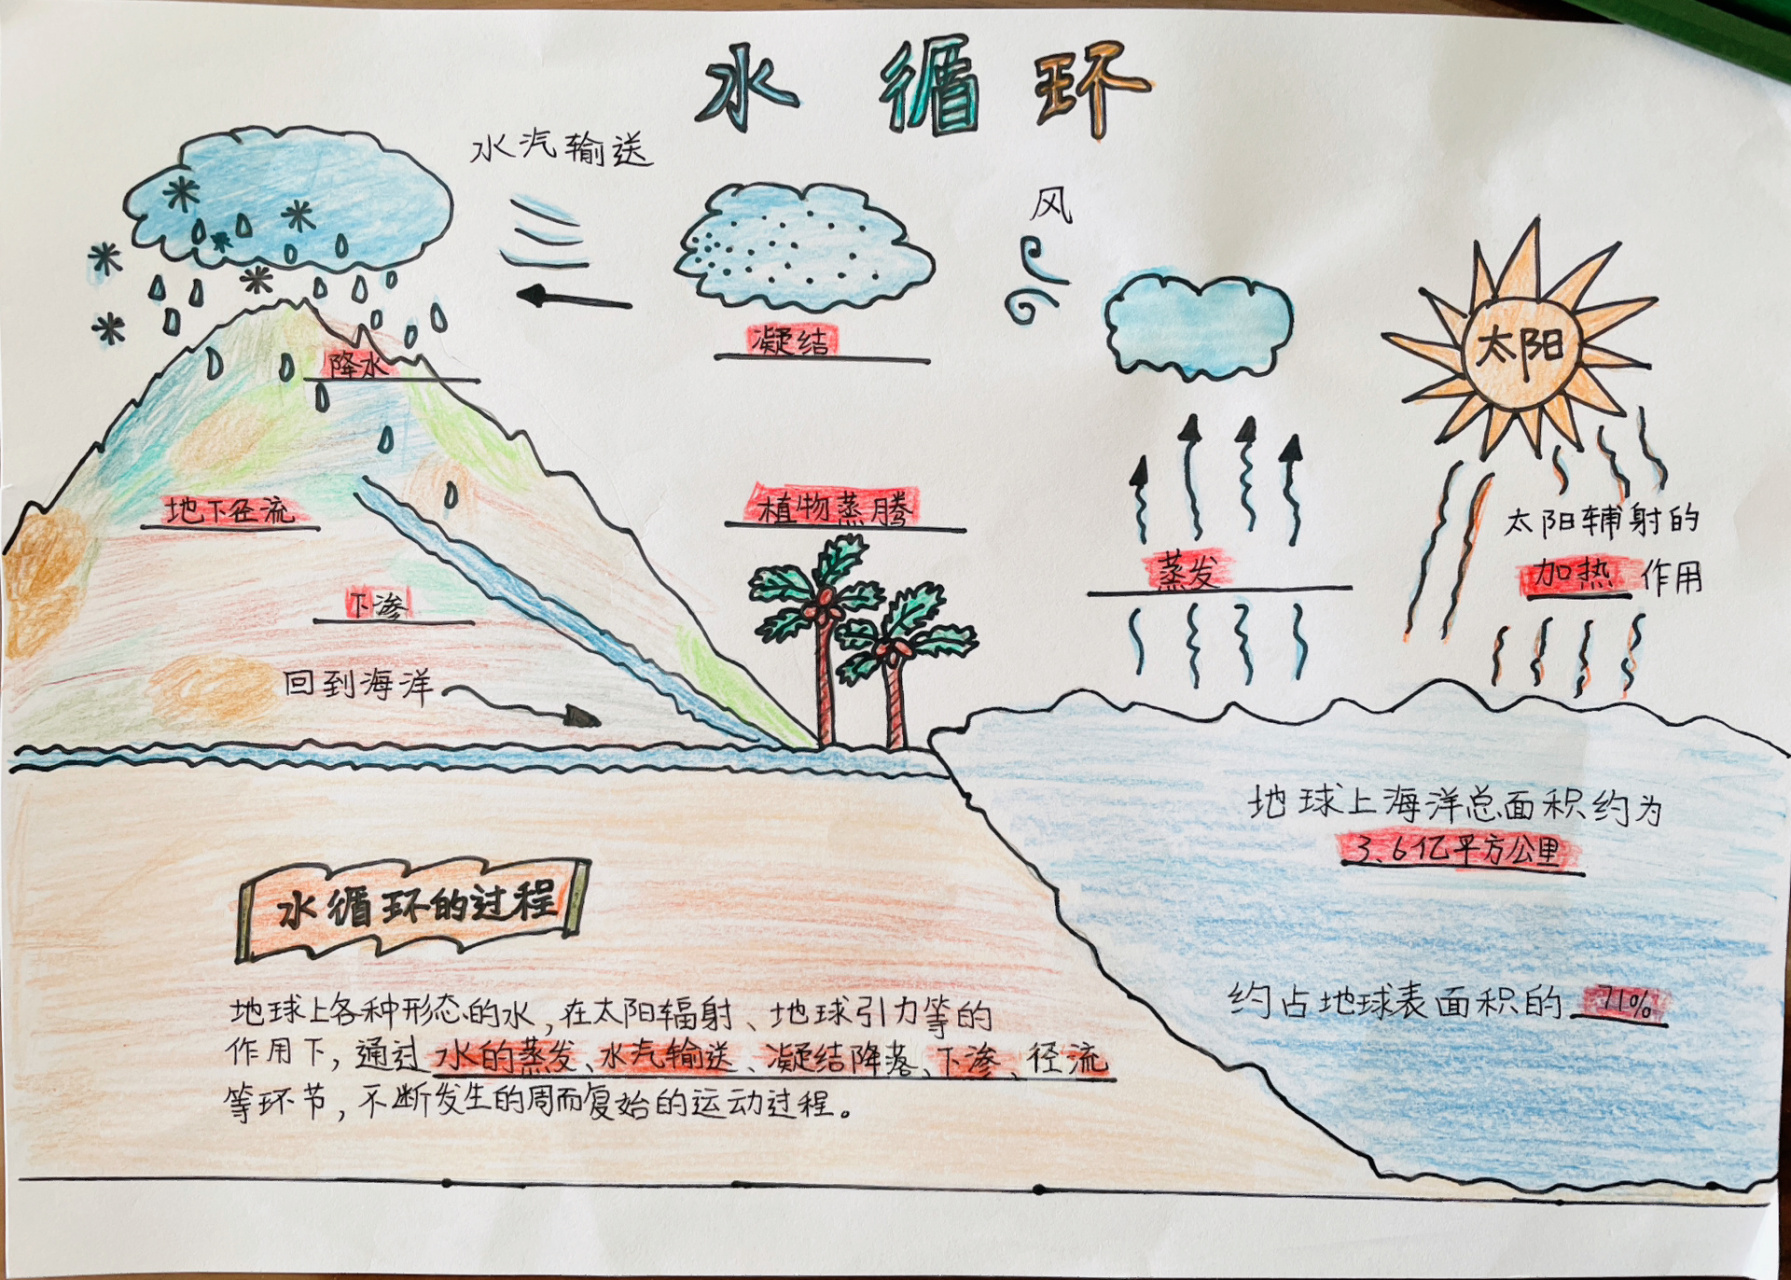 水循环
水汽输送
风
太阳
凝结
降水
地下径流
植物蒸腾
太阳辅射的
加热作用
蒸发
下渗
回到海洋
地球上海洋总面积约为
3.6亿平方公里
水循环的过程
约占地球表面积的71%
地球上各种形态的水,在太阳辐射、地球引力等的
作用下,通过水的蒸发、水汽输送、凝结降落、下渗、径流
等环节,不断发生的周而复始的运动过程。